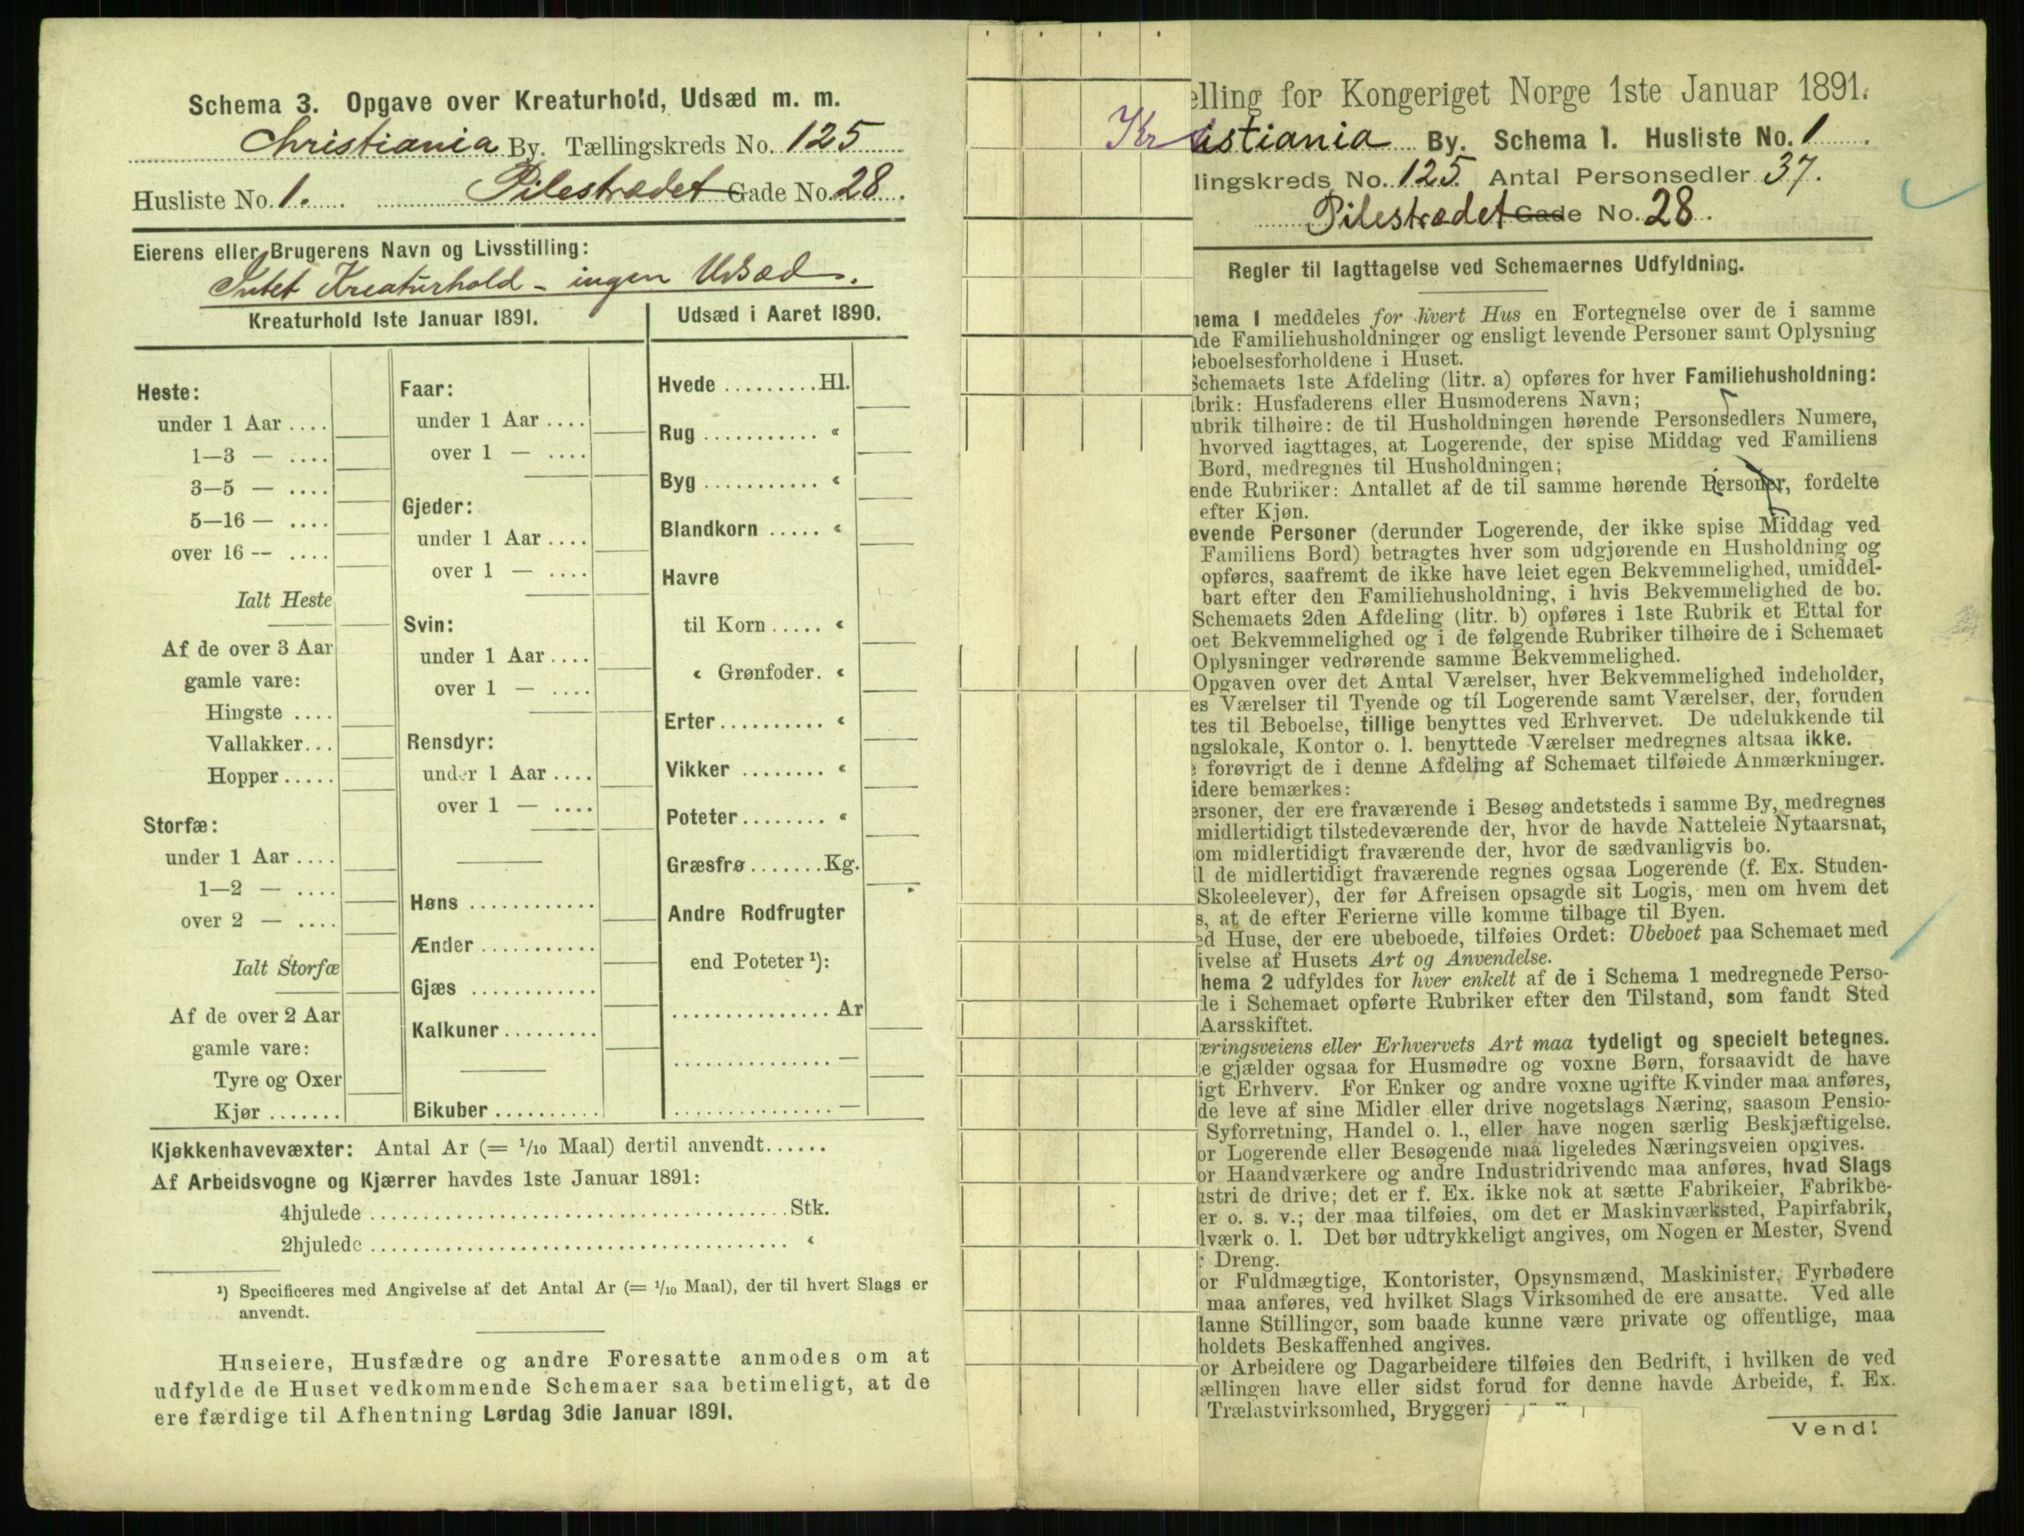 Schema 3. Opgave over Kreaturhold, Udsæd m. m.
Christiania By. Tællingskreds No. 125
Husliste No. 1. Pilestrædet Gade No. 28.
Eierens eller Brugerens Navn og Livsstilling:
Intet Kreaturhold - ingen Udsæd.
Kreaturhold 1ste Januar 1891.
Heste:
under 1 Aar ....
1—3 — ....
3—5 — ....
5—16 — ....
over 16 -- ....
Ialt Heste
Af de over 3 Aar
gamle vare:
Hingste ....
Vallakker...
Hopper.....
Storfæ:
under 1 Aar ....
1—2 — ....
over 2 — ....
Ialt Storfæ
Af de over 2 Aar
gamle vare:
Tyre og Oxer
Kjør.......
Faar:
under 1 Aar ....
over 1 — ....
Gjeder:
under 1 Aar ....
over 1 — ....
Svin:
under 1 Aar....
over 1 — ....
Rensdyr:
under 1 Aar ....
over 1 — ....
Høns ............
Ænder...........
Gjæs ............
Kalkuner.........
Bikuber..........
Udsæd i Aaret 1890.
Hvede .........Hl.
Rug ........... «
Byg ........... «
Blandkorn ..... «
Havre
til Korn ..... «
« Grønfoder. «
Erter.......... «
Vikker ........ «
Poteter........ «
Græsfrø.......Kg.
Andre Rodfrugter
end Poteter ¹):
............... Ar
............... —
............... —
Kjøkkenhavevæxter: Antal Ar (= 1/10 Maal) dertil anvendt......
Af Arbeidsvogne og Kjærrer havdes 1ste Januar 1891:
4hjulede ........................................Stk.
2hjulede ........................................ «
¹) Specificeres med Angivelse af det Antal Ar (= 1/10 Maal), der til hvert Slags er
anvendt.
Huseiere, Husfædre og andre Foresatte anmodes om at
udfylde de Huset vedkommende Schemaer saa betimeligt, at de
ere færdige til Afhentning Lørdag 3die Januar 1891.
elling for Kongeriget Norge 1ste Januar 1891.
Kristiania By. Schema 1. Husliste No. 1
llingskreds No. 125. Antal Personsedler 37.
Pilestrædet Gade No. 28.
Regler til Iagttagelse ved Schemaernes Udfyldning.
hema 1 meddeles for hvert Hus en Fortegnelse over de i samme
nde Familiehusholdninger og ensligt levende Personer samt Oplysning
Beboelsesforholdene i Huset.
Schemaets 1ste Afdeling (litr. a) opføres for hver Familiehusholdning:
brik: Husfaderens eller Husmoderens Navn;
ubrik tilhøire: de til Husholdningen hørende Personsedlers Numere,
hvorved iagttages, at Logerende, der spise Middag ved Familiens
Bord, medregnes til Husholdningen;
ende Rubriker: Antallet af de til samme hørende Personer, fordelte
efter Kjøn.
evende Personer (derunder Logerende, der ikke spise Middag ved
Familiens Bord) betragtes hver som udgjørende en Husholdning og
opføres, saafremt de ikke have leiet egen Bekvemmelighed, umiddel-
bart efter den Familiehusholdning, i hvis Bekvemmelighed de bo.
Schemaets 2den Afdeling (litr. b) opføres i 1ste Rubrik et Ettal for
oet Bekvemmelighed og i de følgende Rubriker tilhøire de i Schemaet
Oplysninger vedrørende samme Bekvemmelighed.
Opgaven over det Antal Værelser, hver Bekvemmelighed indeholder,
es Værelser til Tyende og til Logerende samt Værelser, der, foruden
tes til Beboelse, tillige benyttes ved Erhvervet. De udelukkende til
ngslokale, Kontor o. l. benyttede Værelser medregnes altsaa ikke.
e forøvrigt de i denne Afdeling af Schemaet tilføiede Anmærkninger.
idere bemærkes:
ersoner, der ere fraværende i Besøg andetsteds i samme By, medregnes
midlertidigt tilstedeværende der, hvor de havde Natteleie Nytaarsnat,
om midlertidigt fraværende der, hvor de sædvanligvis bo.
il de midlertidigt fraværende regnes ogsaa Logerende (f. Ex. Studen-
Skoleelever), der før Afreisen opsagde sit Logis, men om hvem det
s, at de efter Ferierne ville komme tilbage til Byen.
ed Huse, der ere ubeboede, tilføies Ordet: Ubeboet paa Schemaet med
ivelse af Husets Art og Anvendelse.
hema 2 udfyldes for hver enkelt af de i Schema 1 medregnede Perso-
le i Schemaet opførte Rubriker efter den Tilstand, som fandt Sted
Aarsskiftet.
æringsveiens eller Erhvervets Art maa tydeligt og specielt betegnes.
e gjælder ogsaa for Husmødre og voxne Børn, forsaavidt de have
igt Erhverv. For Enker og andre voxne ugifte Kvinder maa anføres,
de leve af sine Midler eller drive nogetslags Næring, saasom Pensio-
Syforretning, Handel o. l., eller have nogen særlig Beskjæftigelse.
or Logerende eller Besøgende maa ligeledes Næringsveien opgives.
or Haandværkere og andre Industridrivende maa anføres, hvad Slags
ustri de drive; det er f. Ex. ikke nok at sætte Fabrikeier, Fabrikbe-
er o. s. v.; der maa tilføies, om det er Maskinværksted, Papirfabrik,
lværk o. l. Det bør udtrykkeligt angives, om Nogen er Mester, Svend
r Dreng.
or Fuldmægtige, Kontorister, Opsynsmænd, Maskinister, Fyrbødere
maa anføres, ved hvilket Slags Virksomhed de ere ansatte. Ved alle
danne Stillinger, som baade kunne være private og offentlige, maa
holdets Beskaffenhed angives.
or Arbeidere og Dagarbeidere tilføies den Bedrift, i hvilken de ved
ællingen have eller sidst forud for denne havde Arbeide, f. Ex.
Trælastvirksomhed, Bryggeri
Vend!